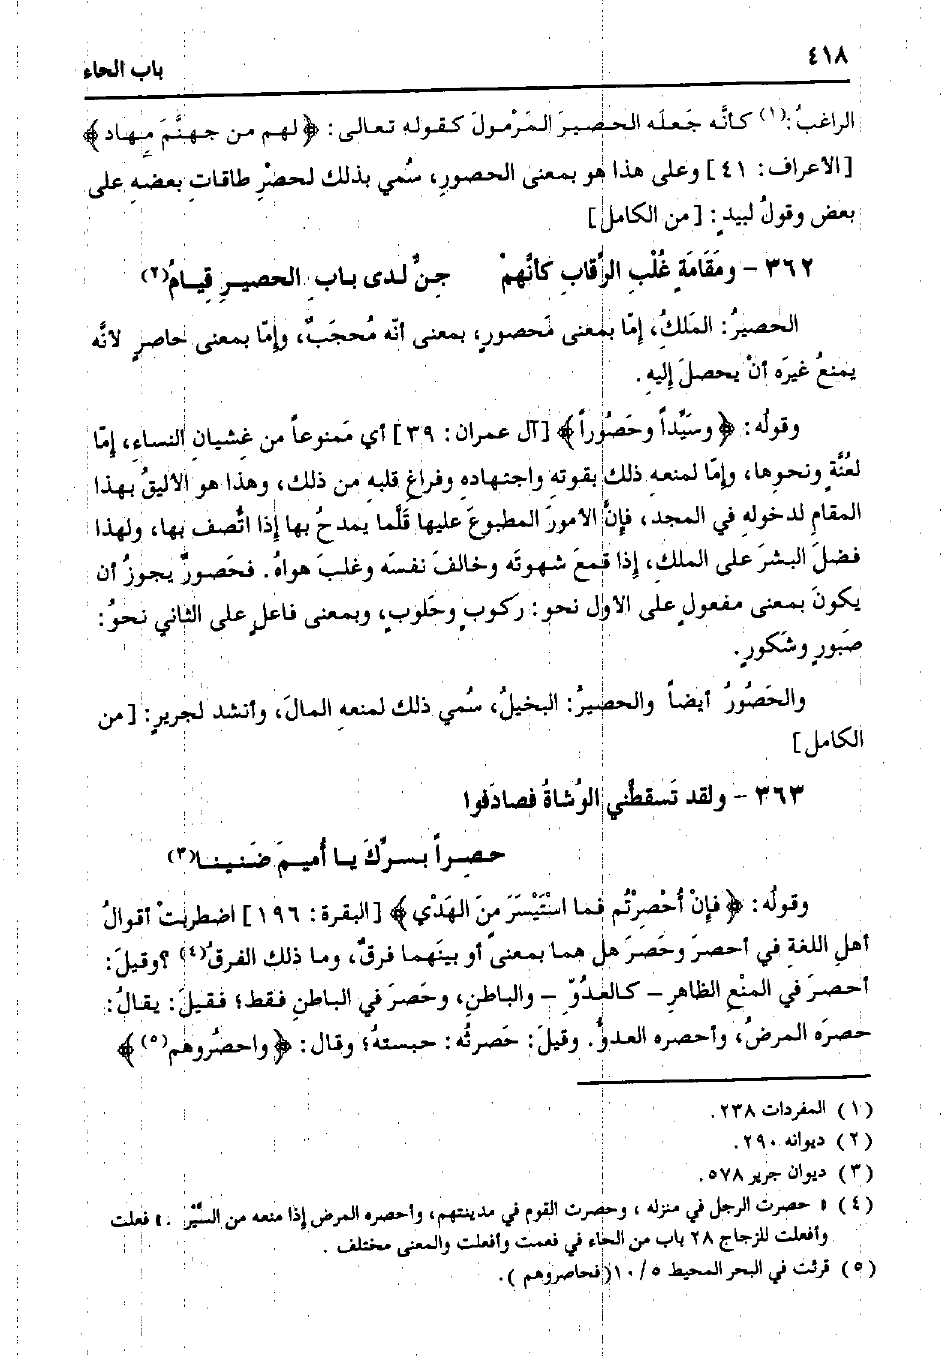 ٤١٨
باب الحاء
الراغبُ:(١) كأنَّه جَعلَه الحصيرَ المَرْمولَ كقولهِ تعالى: ﴿لهم من جهنَّمَ مِهاد﴾
[الأعراف: ٤١] وعلى هذا هو بمعنى الحصورِ، سُمي بذلك لحصْرِ طاقاتِ بعضهِ على
بعض وقولُ لبيدٍ: [من الكامل]
٣٦٢ - ومَقَامَةٍ غُلْبِ الرِّقابِ كأنَّهمْ جِنٌّ لدى بابِ الحصيرِ قِيامُ(٢)
الحصيرُ: المَلكُ، إمّا بمعنى مَحصورٍ، بمعنى أنّه مُحجَبٌ، وإمّا بمعنى حاصرٍ لأنَّه
يمنعُ غيرَه أنْ يحصلَ إليهِ.
وقولُه: ﴿وسَيِّداً وحَصُوراً﴾ [آل عمران: ٣٩] أي مَمنوعاً من غِشيانِ النساءِ، إمّا
لعُنَّةٍ ونحوِها، وإمّا لمنعهِ ذلك بقوتهِ واجتهادِهِ وفراغِ قلبهِ من ذلك، وهذا هو الأليقُ بهذا
المقامِ لدخولهِ في المجد، فإنَّ الأمورَ المطبوعَ عليها قَلَّما يمدحُ بها إذا اتُّصف بها، ولهذا
فضلَ البشرَ على الملكِ، إذا قمعَ شهوتَه وخالفَ نفسَه وغلبَ هواهُ. فحَصورٌ يجوزُ أن
يكونَ بمعنى مفعولٍ على الأول نحو: ركوبٍ وحَلوبٍ، وبمعنى فاعلٍ على الثاني نحوُ:
صَبورٍ وشَكورٍ.
والحَصُورُ أيضاً والحصيرُ: البخيلُ، سُمي ذلك لمنعهِ المالَ، وأنشد لجريرٍ: [من
الكامل]
٣٦٣ - ولقد تَسقطُني الوُشاةُ فصادَفوا
حصِراً بسرِّكَ يا أُميمَ ضَنينا(٣)
وقولُه: ﴿فإنْ أُحْصِرْتُم فما استَيْسَرَ مِنَ الهَدْيِ﴾ [البقرة: ١٩٦] اضطربتْ أقوالُ
أهلِ اللغةِ في أحصرَ وحَصرَ هل هما بمعنىً أو بينَهما فرقٌ، وما ذلك الفرقُ(٤) ؟وقيلَ:
أحصرَ في المنْعِ الظاهرِ - كالعدُوِّ - والباطنِ، وحَصرَ في الباطنِ فقط؛ فقيلَ: يقالُ:
حصرَه المرضُ، وأحصره العدوُّ. وقيلَ: حَصرتُه: حبستهُ؛ وقال: ﴿واحصُروهم(٥)﴾
(١) المفردات ٢٣٨.
(٢) ديوانه ٢٩٠.
(٣) ديوان جرير ٥٧٨.
(٤) « حصرت الرجل في منزله ، وحصرت القوم في مدينتهم، وأحصره المرض إذا منعه من السَّيْر .» فعلت
وأفعلت للزجاج ٢٨ باب من الحاء في فعمت وأفعلت والمعنى مختلف .
(٥) قرئت في البحر المحيط ٥ /١٠(فحاصروهم ).